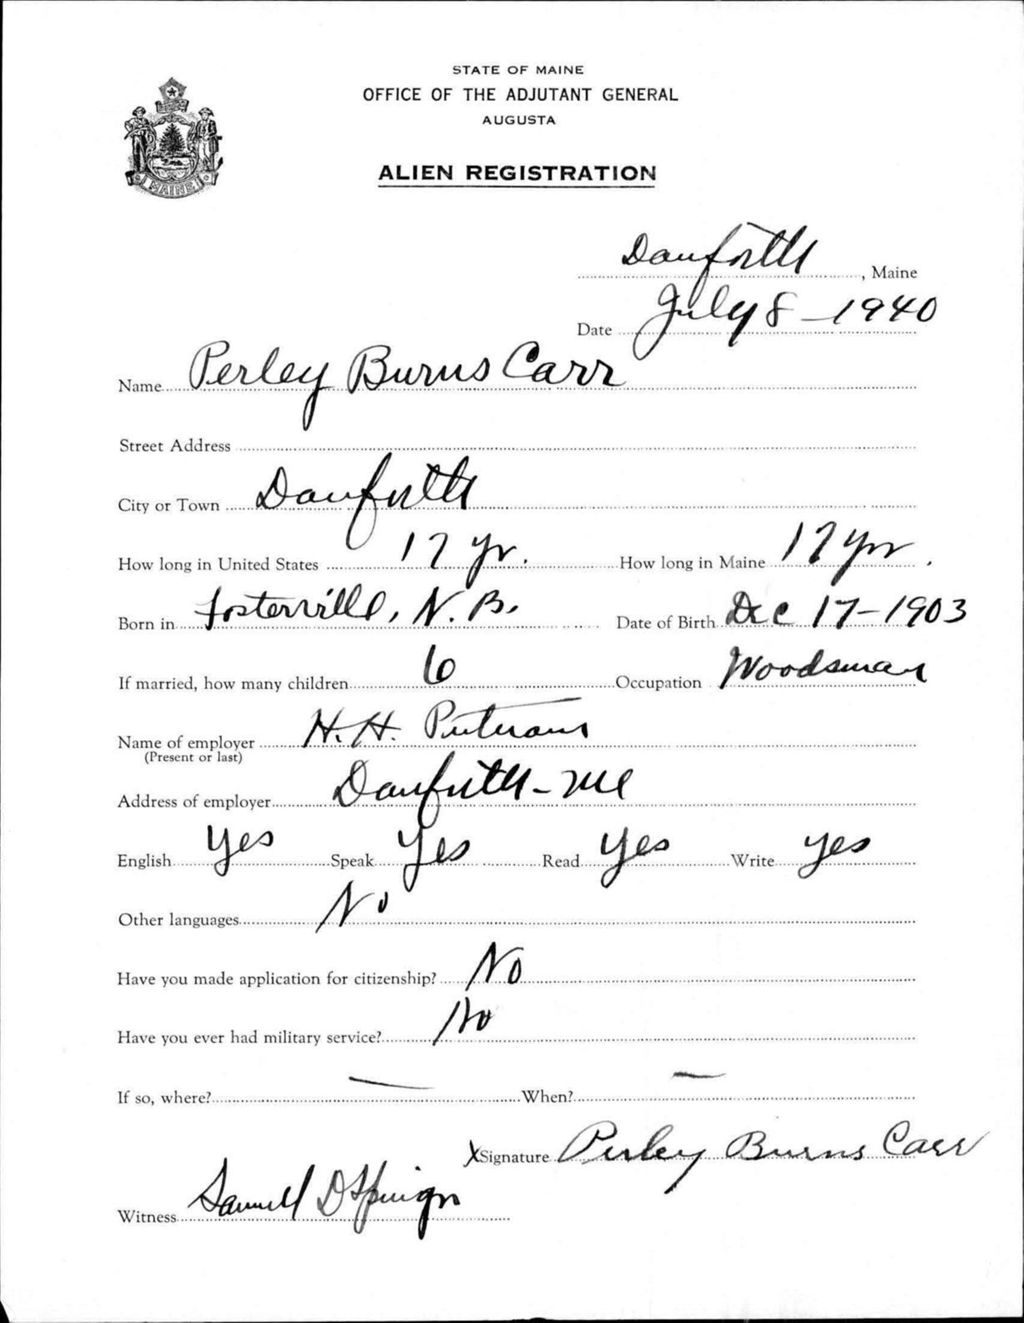 STATE OF MAINE
OFFICE OF THE ADJUTANT GENERAL
AUGUSTA
ALIEN REGISTRATION
MAINE
Danforth, Maine
Date July 8 - 1940
Name Perley Burns Carr
Street Address
City or Town Danforth
How long in United States 17 yr. How long in Maine 17 yr.
Born in Fosterville, N.B. Date of Birth Dec 17-1903
If married, how many children 6 Occupation Woodsman
Name of employer H.H. Putnam
(Present or last)
Address of employer Danforth - Me
English Yes Speak Yes Read Yes Write Yes
Other languages No
Have you made application for citizenship? No
Have you ever had military service? No
If so, where? — When? —
X Signature Perley Burns Carr
Witness Samuel D